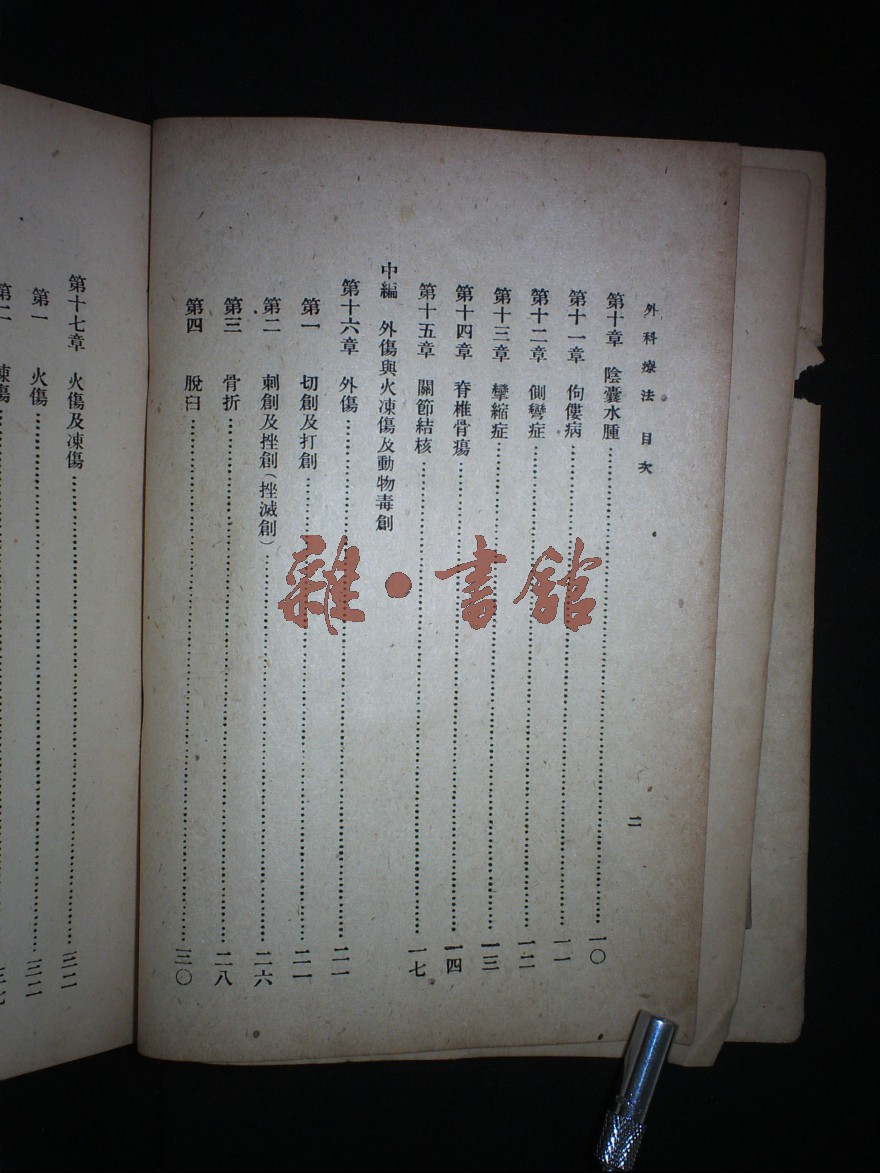 外科療法 目次
二
第十章 陰囊水腫……一〇
第十一章 佝僂病……一一
第十二章 側彎症……一二
第十三章 攣縮症……一三
第十四章 脊椎骨瘍……一四
第十五章 關節結核……一七
中編 外傷與火凍傷及動物毒創
第十六章 外傷……二一
第一 切創及打創……二一
第二 刺創及挫創(挫滅創)……二六
第三 骨折……二八
第四 脫臼……三〇
第十七章 火傷及凍傷……三二
第一 火傷……三二
第二 凍傷
雜·書館